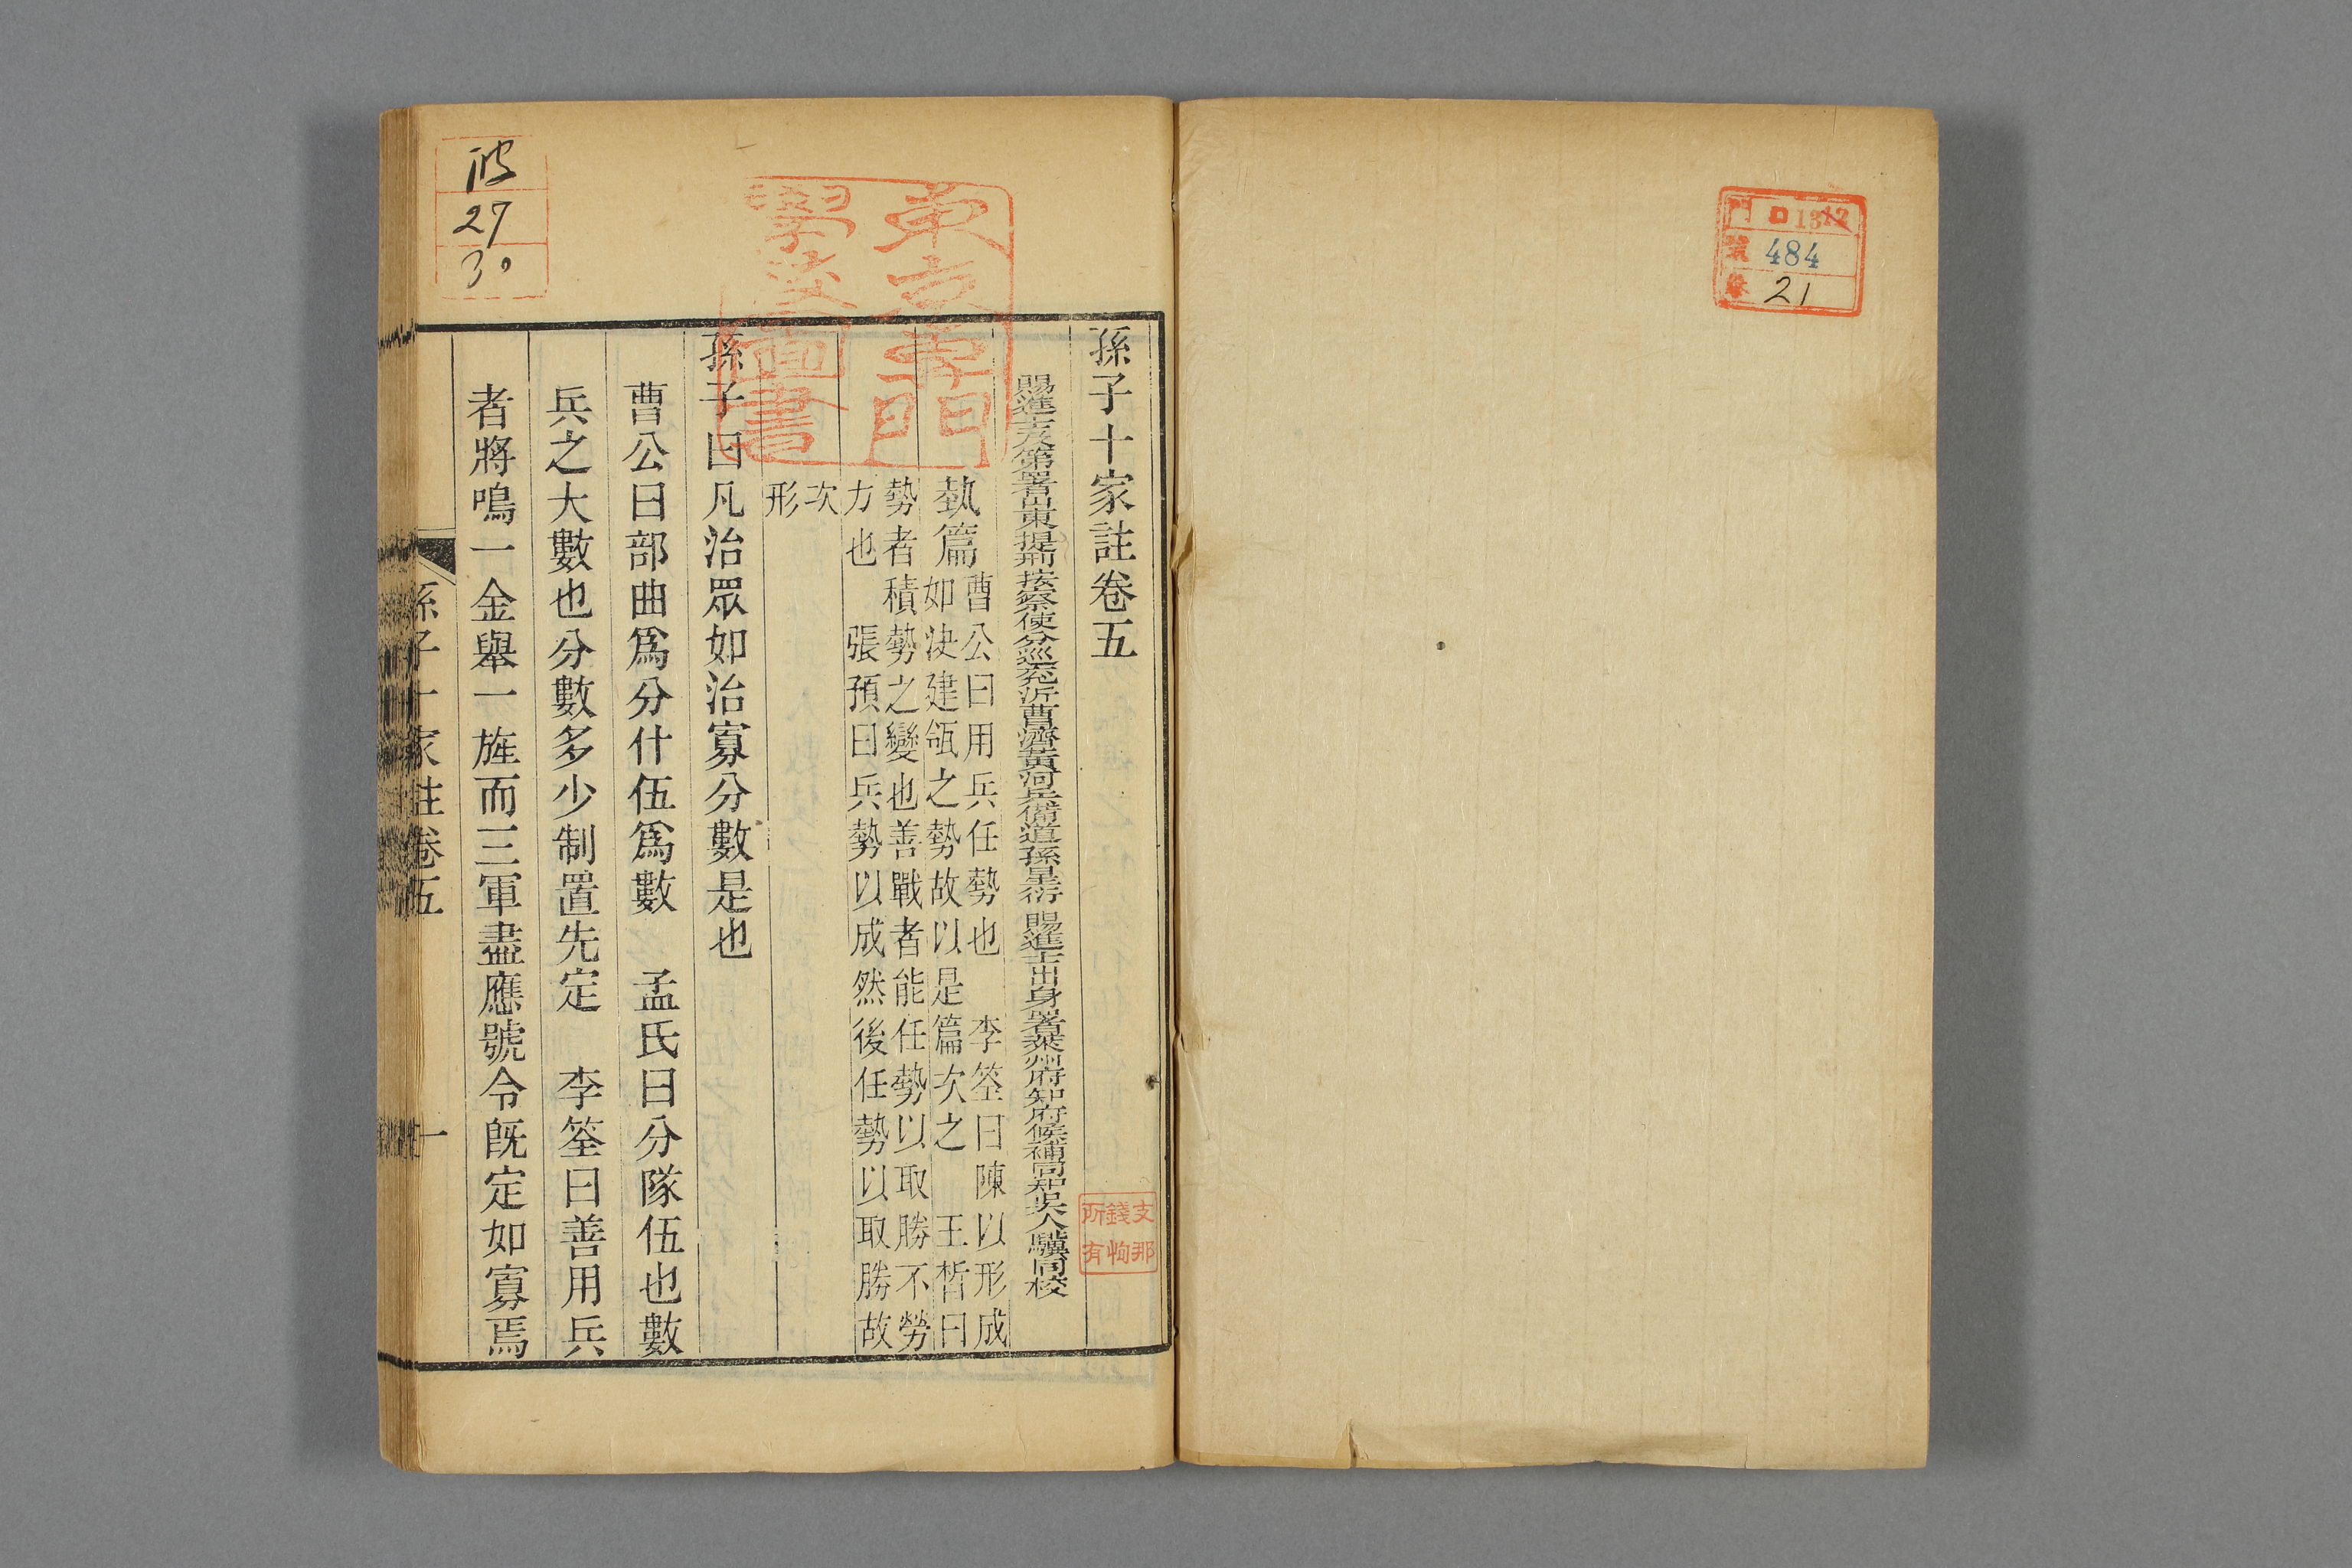 門 口 13 12
號 484
卷 21
孫子十家註卷五
賜進士及第署山東提刑按察使分巡兗沂曹濟黃河兵備道孫星衍 賜進士出身署萊州府知府候補同知吳人驥同校
埶篇 曹公曰用兵任勢也 李筌曰陳以形成
如決建瓴之勢故以是篇次之 王晳曰
勢者積勢之變也善戰者能任勢以取勝不勞
力也 張預曰兵勢以成然後任勢以取勝故
次
形
孫子曰凡治眾如治寡分數是也
曹公曰部曲爲分什伍爲數 孟氏曰分隊伍也數
兵之大數也分數多少制置先定 李筌曰善用兵
者將鳴一金舉一旌而三軍盡應號令既定如寡焉
孫子十家註卷五
一
東京專門
學校圖書
支那
錢恂
所有
27
30